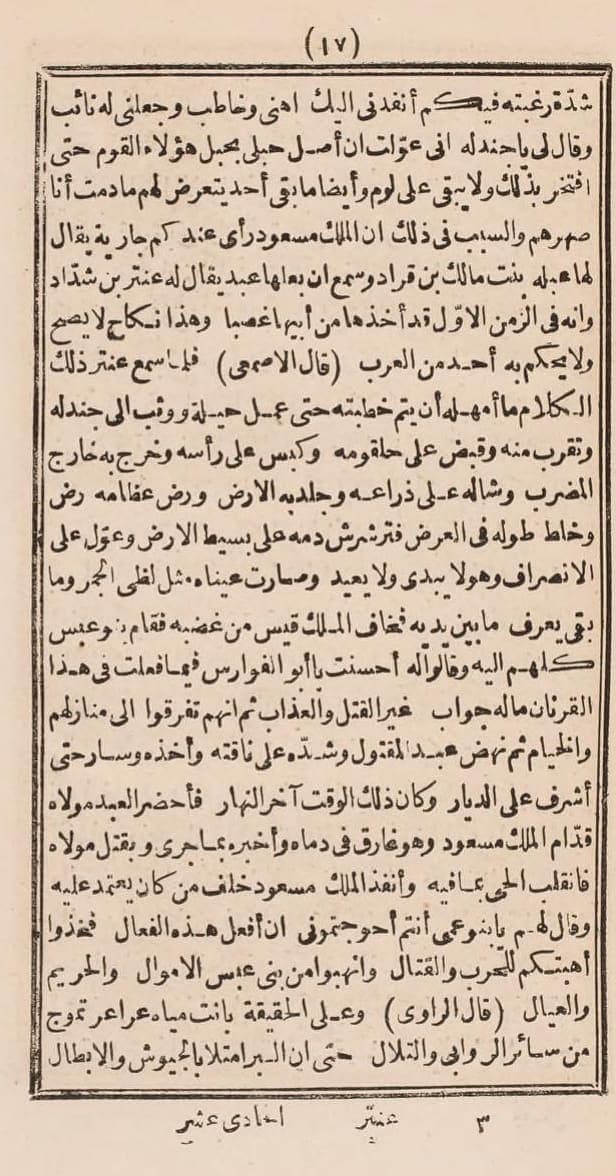 (١٧)
شدّة رغبته فيكم أنفدنى اليك اهنى وخاطب وجعلنى له نائب
وقال لى ياجندله انى عوّلت ان أصل حبلى بحبل هؤلاء القوم حتى
افتخر بذلك ولا يبقى على لوم وأيضا ما بقى أحد يتعرض لهم ما دمت أنا
صهرهم والسبب فى ذلك ان الملك مسعود رأى عند كم جارية يقال
لها عبله بنت مالك بن قراد وسمع ان بعلها عبد يقال له عنتر بن شدّاد
وانه فى الزمن الاوّل قد أخذها من أبيها غصبا وهذا نكاح لا يصح
ولا يحكم به أحد من العرب (قال الاصمعى) فلما سمع عنتر ذلك
الكلام ما أمهله أن يتم خطبته حتى عمل حيلة ووثب الى جندله
وتقرب منه وقبض على حلقومه وكبس على رأسه وخرج به خارج
المضرب وشاله على ذراعه وجلد به الارض ورض عظامه رض
وخلط طوله فى العرض فترشرش دمه على بسيط الارض وعوّل على
الانصراف وهو لا يبدى ولا يعيد وصارت عيناه مثل لظى الجمر وما
بقى يعرف ما بين يديه فخاف الملك قيس من غضبه فقام بنو عبس
كلهم اليه وقالوا له أحسنت يا أبو الفوارس فيما فعلت فى هذا
القرنان ماله جواب غير القتل والعذاب ثم انهم تفرقوا الى منازلهم
والخيام ثم نهض عبد المقتول وشدّه على ناقته وأخذه وسار حتى
أشرف على الديار وكان ذلك الوقت آخر النهار فأحضر العبد مولاه
قدّام الملك مسعود وهو غارق فى دماه وأخبره بما جرى وبقتل مولاه
فانقلب الحى بما فيه وأنفذ الملك مسعود خلف من كان يعتمد عليه
وقال لهم يا بنو عمى أنتم أحوجتمونى ان أفعل هذه الفعال فخذوا
أهبتكم للحرب والقتال وانهبوا من بنى عبس الاموال والحريم
والعيال (قال الراوى) وعلى الحقيقة باتت مياه عراعر تموج
من سائر الروابى والتلال حتى ان البر امتلا بالجيوش والابطال
٣ عنتر الحادى عشر